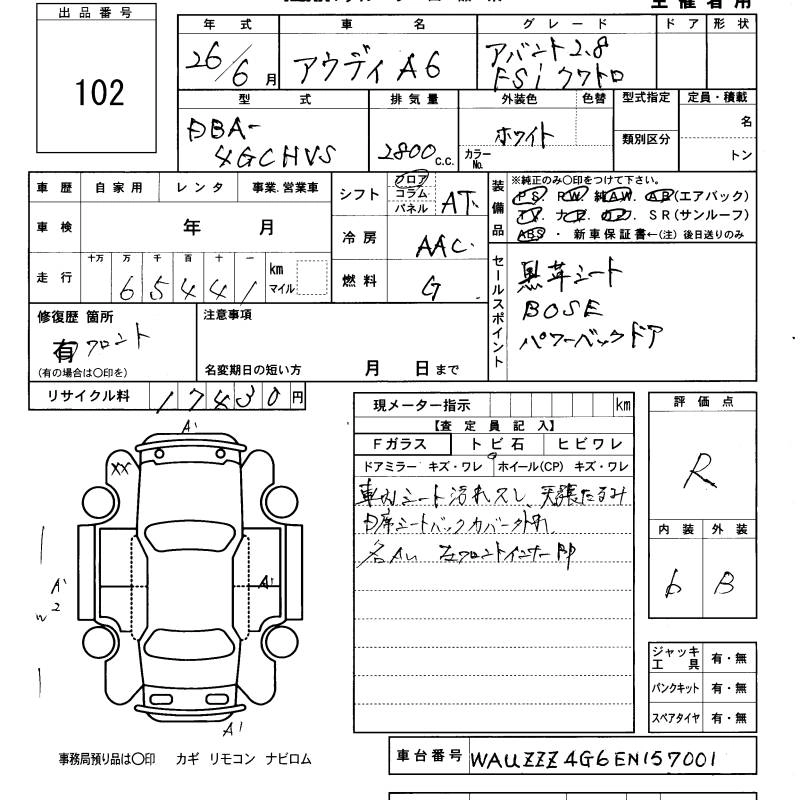 出品番号
102
年式 車名 グレード ドア 形状
26/6月 アウディ A6 アバント2.8
FSi クワトロ
型式 排気量 外装色 色替 型式指定 定員・積載
DBA-
4GCHVS 2800 c.c. ホワイト
カラーNo. 類別区分 名
トン
車歴 自家用 レンタ 事業.営業車
車検 年 月
走行 十万 万 千 百 十 一 km
マイル
6 5 4 4 1
シフト フロア
コラム
パネル AT.
冷房 AAC
燃料 G
装備品 ※純正のみ〇印をつけて下さい。
PS. PW. 純AW. AB(エアバック)
TV. ナビ. SR(サンルーフ)
ABS ・ 新車保証書←(注) 後日送りのみ
セールスポイント
黒革シート
BOSE
パワーバックドア
修復歴 箇所
有 フロント
(有の場合は〇印を)
注意事項
名変期日の短い方 月 日まで
リサイクル料 17430円
現メーター指示 km
【査定員記入】
Fガラス トビ石 ヒビワレ
ドアミラー キズ・ワレ ホイール(CP) キズ・ワレ
車内シート汚れスレ、天張たるみ
D席シートバックカバー外れ
各AU 左フロントインナー
評価点
R
内装 外装
6 B
ジャッキ
工具 有・無
パンクキット 有・無
スペアタイヤ 有・無
A'
XX
A'
A'
2
w
A'
事務局預り品は〇印 カギ リモコン ナビロム
車台番号 WAUZZZ4G6EN157001